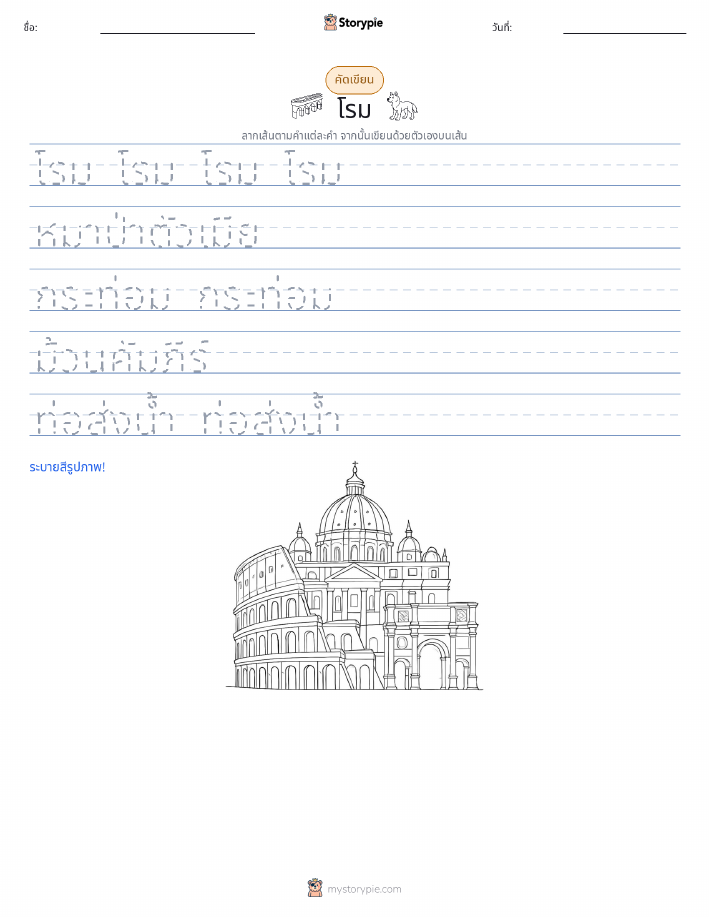 ชื่อ: Storypie วันที่:
คัดเขียน
โรม
ลากเส้นตามคำแต่ละคำ จากนั้นเขียนด้วยตัวเองบนเส้น
โรม โรม โรม โรม
หมาป่าตัวเมีย
กระท่อม กระท่อม
ม้วนคัมภีร์
ท่อส่งน้ำ ท่อส่งน้ำ
ระบายสีรูปภาพ!
mystorypie.com